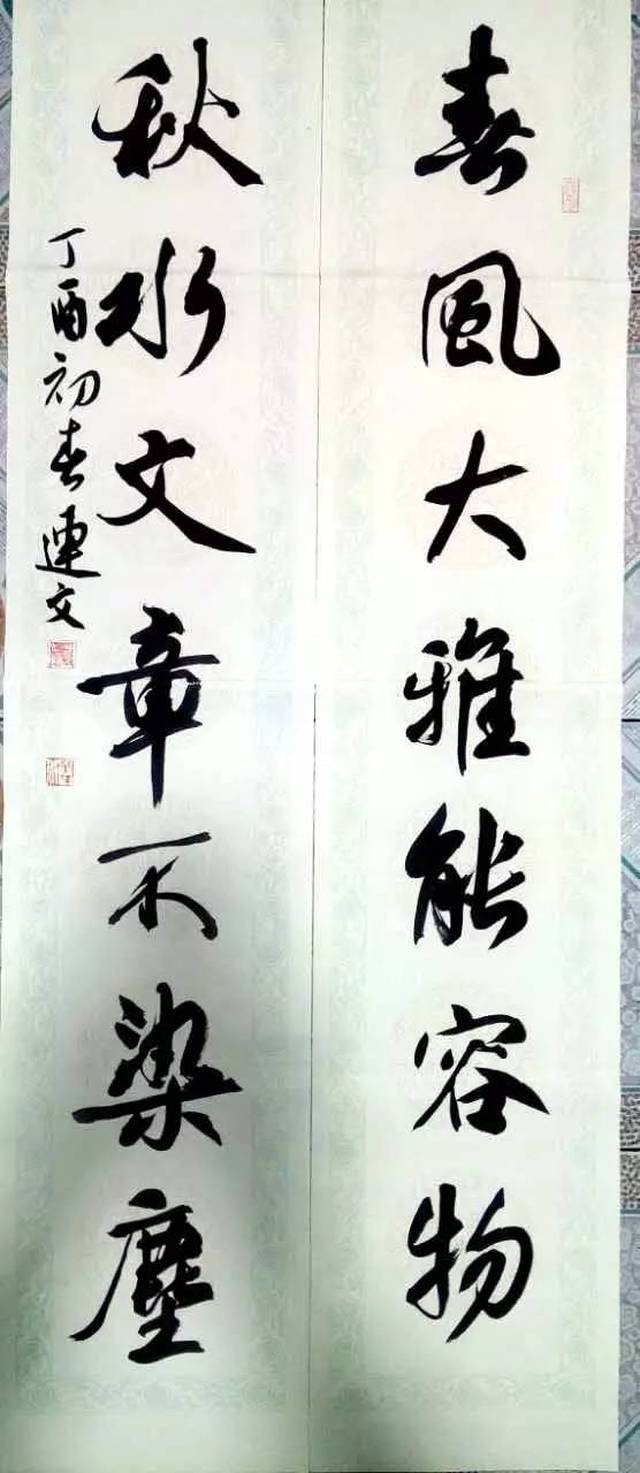 春風大雅能容物
秋水文章不染塵
丁酉初春連文